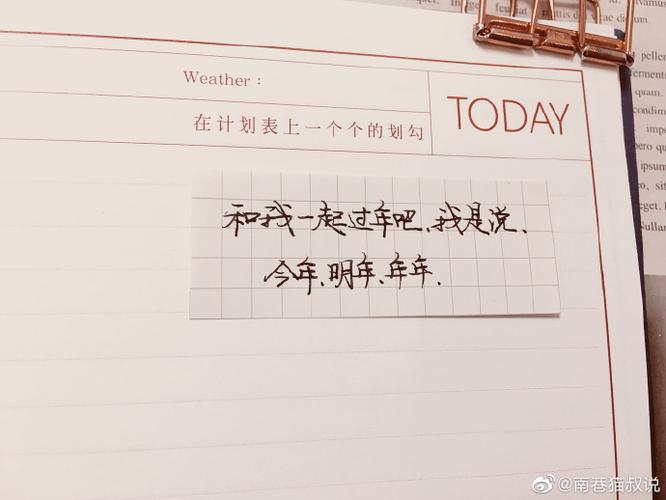 Weather：
在计划表上一个个的划勾
TODAY
和我一起过年吧、我是说、
今年、明年、年年.
feu
mattis
dictum.
quam.
@南巷猫叔说